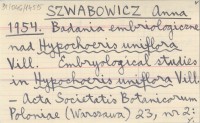 SZWABOWICZ Anna
1954. Badania embriologiczne
nad Hypochoeris uniflora
Vill. Embryological studies
in Hypochoeris uniflora Vill.
— Acta Societatis Botanicorum
Poloniae (Warszawa) 23, nr 2: